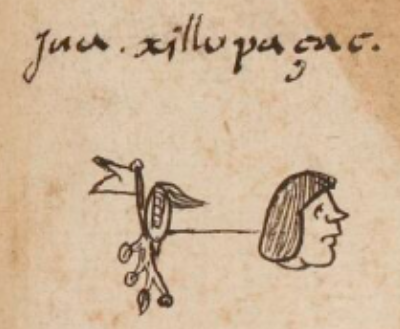 jua. xillopaçac.